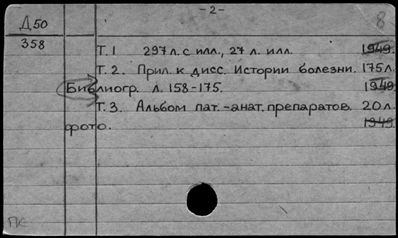 - 2 -
Д50
8
358
Т. 1 297 л. с илл., 27 л. илл. 1949.
Т. 2. Прил. к дисс. Истории болезни. 175 л.
Библиогр. л. 158-175. 1949
Т. 3. Альбом пат.-анат. препаратов. 20 л.
фото. 1949
ПК